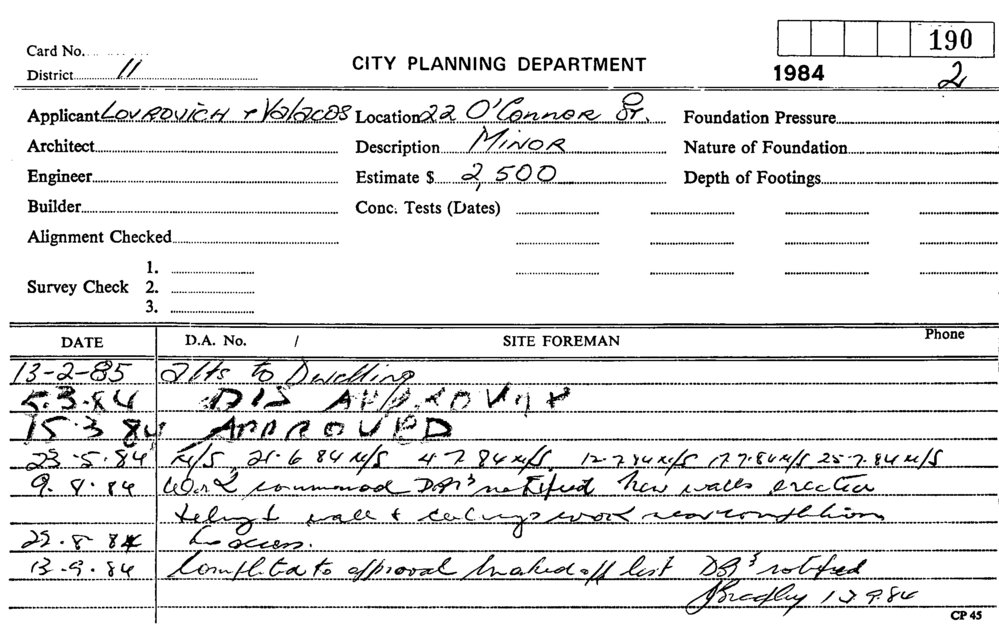 190
Card No.
District 11
CITY PLANNING DEPARTMENT
1984
2
Applicant LOVROVICH + Valacos Location 22 O'Connor St. Foundation Pressure
Architect Description MINOR Nature of Foundation
Engineer Estimate $ 2,500 Depth of Footings
Builder Conc. Tests (Dates)
Alignment Checked
1.
Survey Check 2.
3.
DATE D.A. No. / SITE FOREMAN Phone
13-2-85 alts to Dwelling
5.3.84 DIS
15.3 84 APPROVED
23.5.84 21.6 84 4 7 84 12.7 84 17.7.84 25.7.84
9. 84 Work DBI's notified New walls erected
wall & ceilings work near completion
29.8 84 No access.
13.9.84 Completed to approval marked off list DBI's notified
Bradley 13 9.84
CP 45